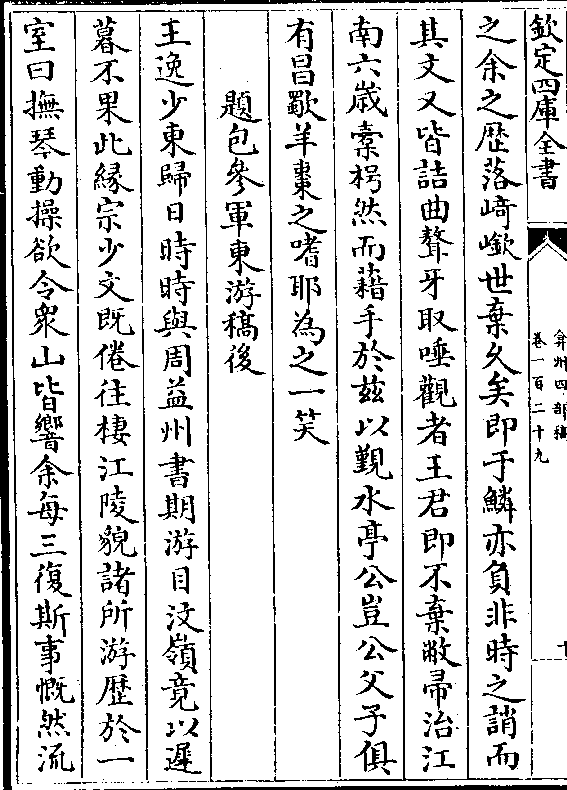 欽定四庫全書
弇州四部稿
卷一百二十九
之余之歴落﨑嶔世棄久矣即于鱗亦負非時之誚而
其文又皆詰曲聱牙取唾觀者王君即不棄敝帚治江
南六歳橐枵然而藉手於兹以覲水亭公豈公父子俱
有昌歜羊棗之嗜耶為之一笑
題包參軍東游稿後
王逸少東歸日時時與周益州書期游目汶嶺竟以遲
暮不果此縁宗少文既倦往棲江陵貌諸所游歴於一
室曰撫琴動操欲令衆山皆響余每三復斯事慨然流